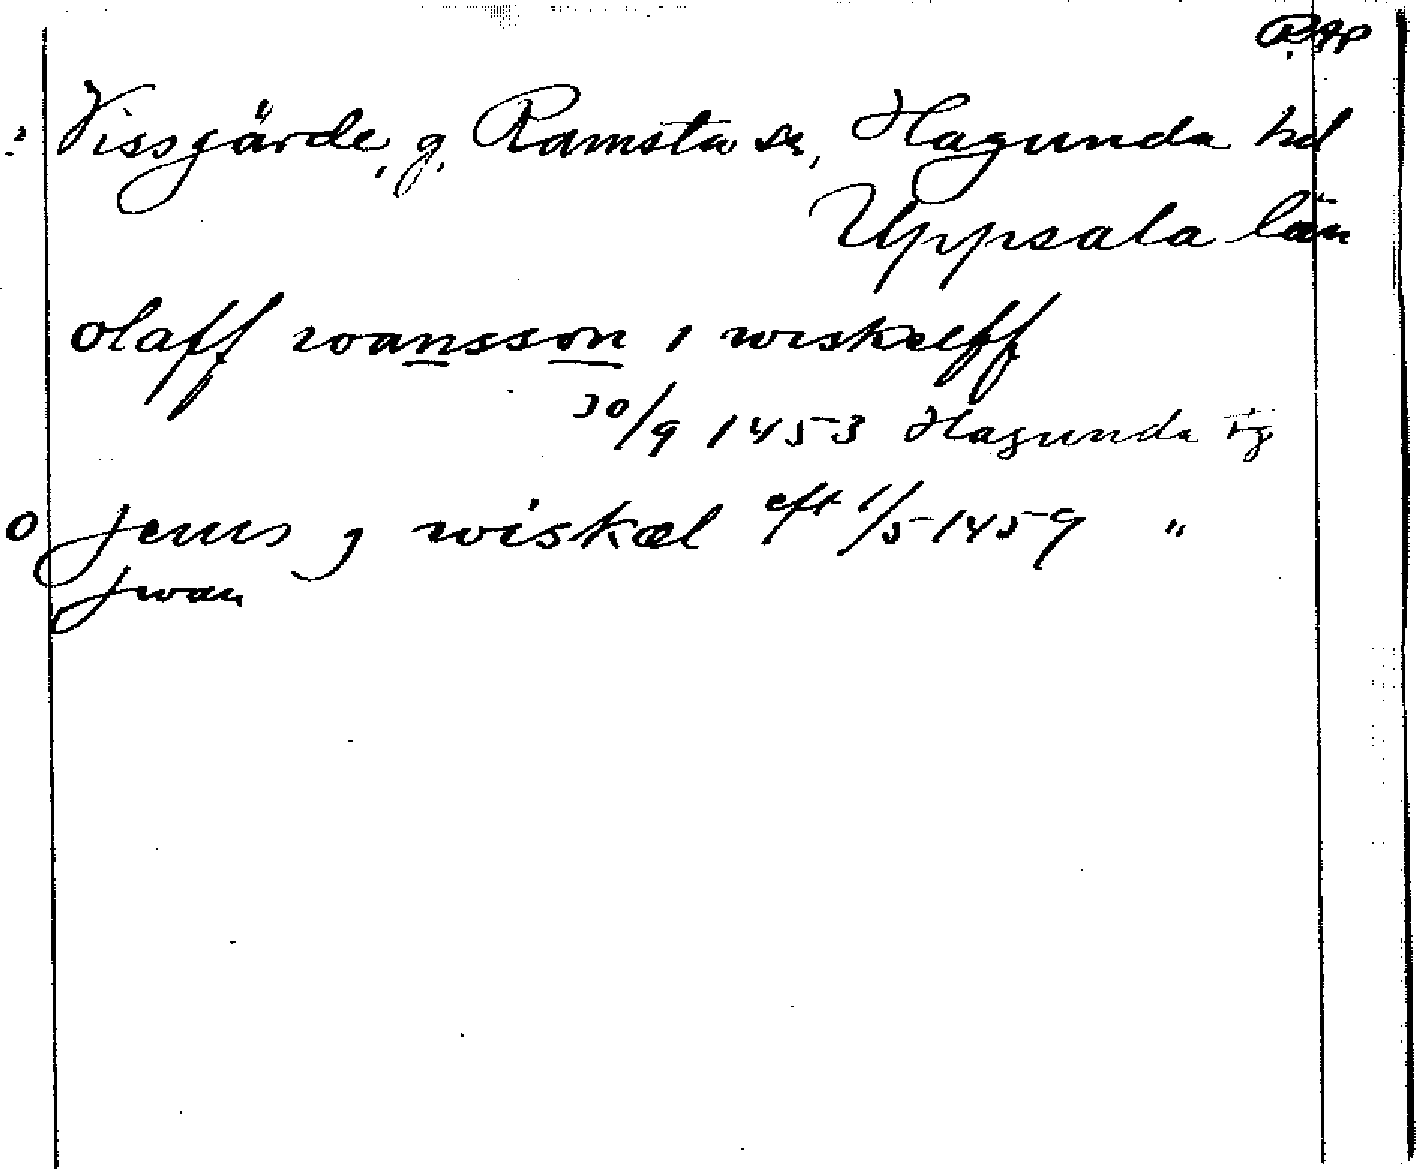 RAP
: Vissgärde, g. Ramsta sn, Hagunda hd
Uppsala län
olaff wansson i wiskelff
30/9 1453 Hagunda tg
o Jenus j wiskæl eft 1/5 1459 "
Jwan